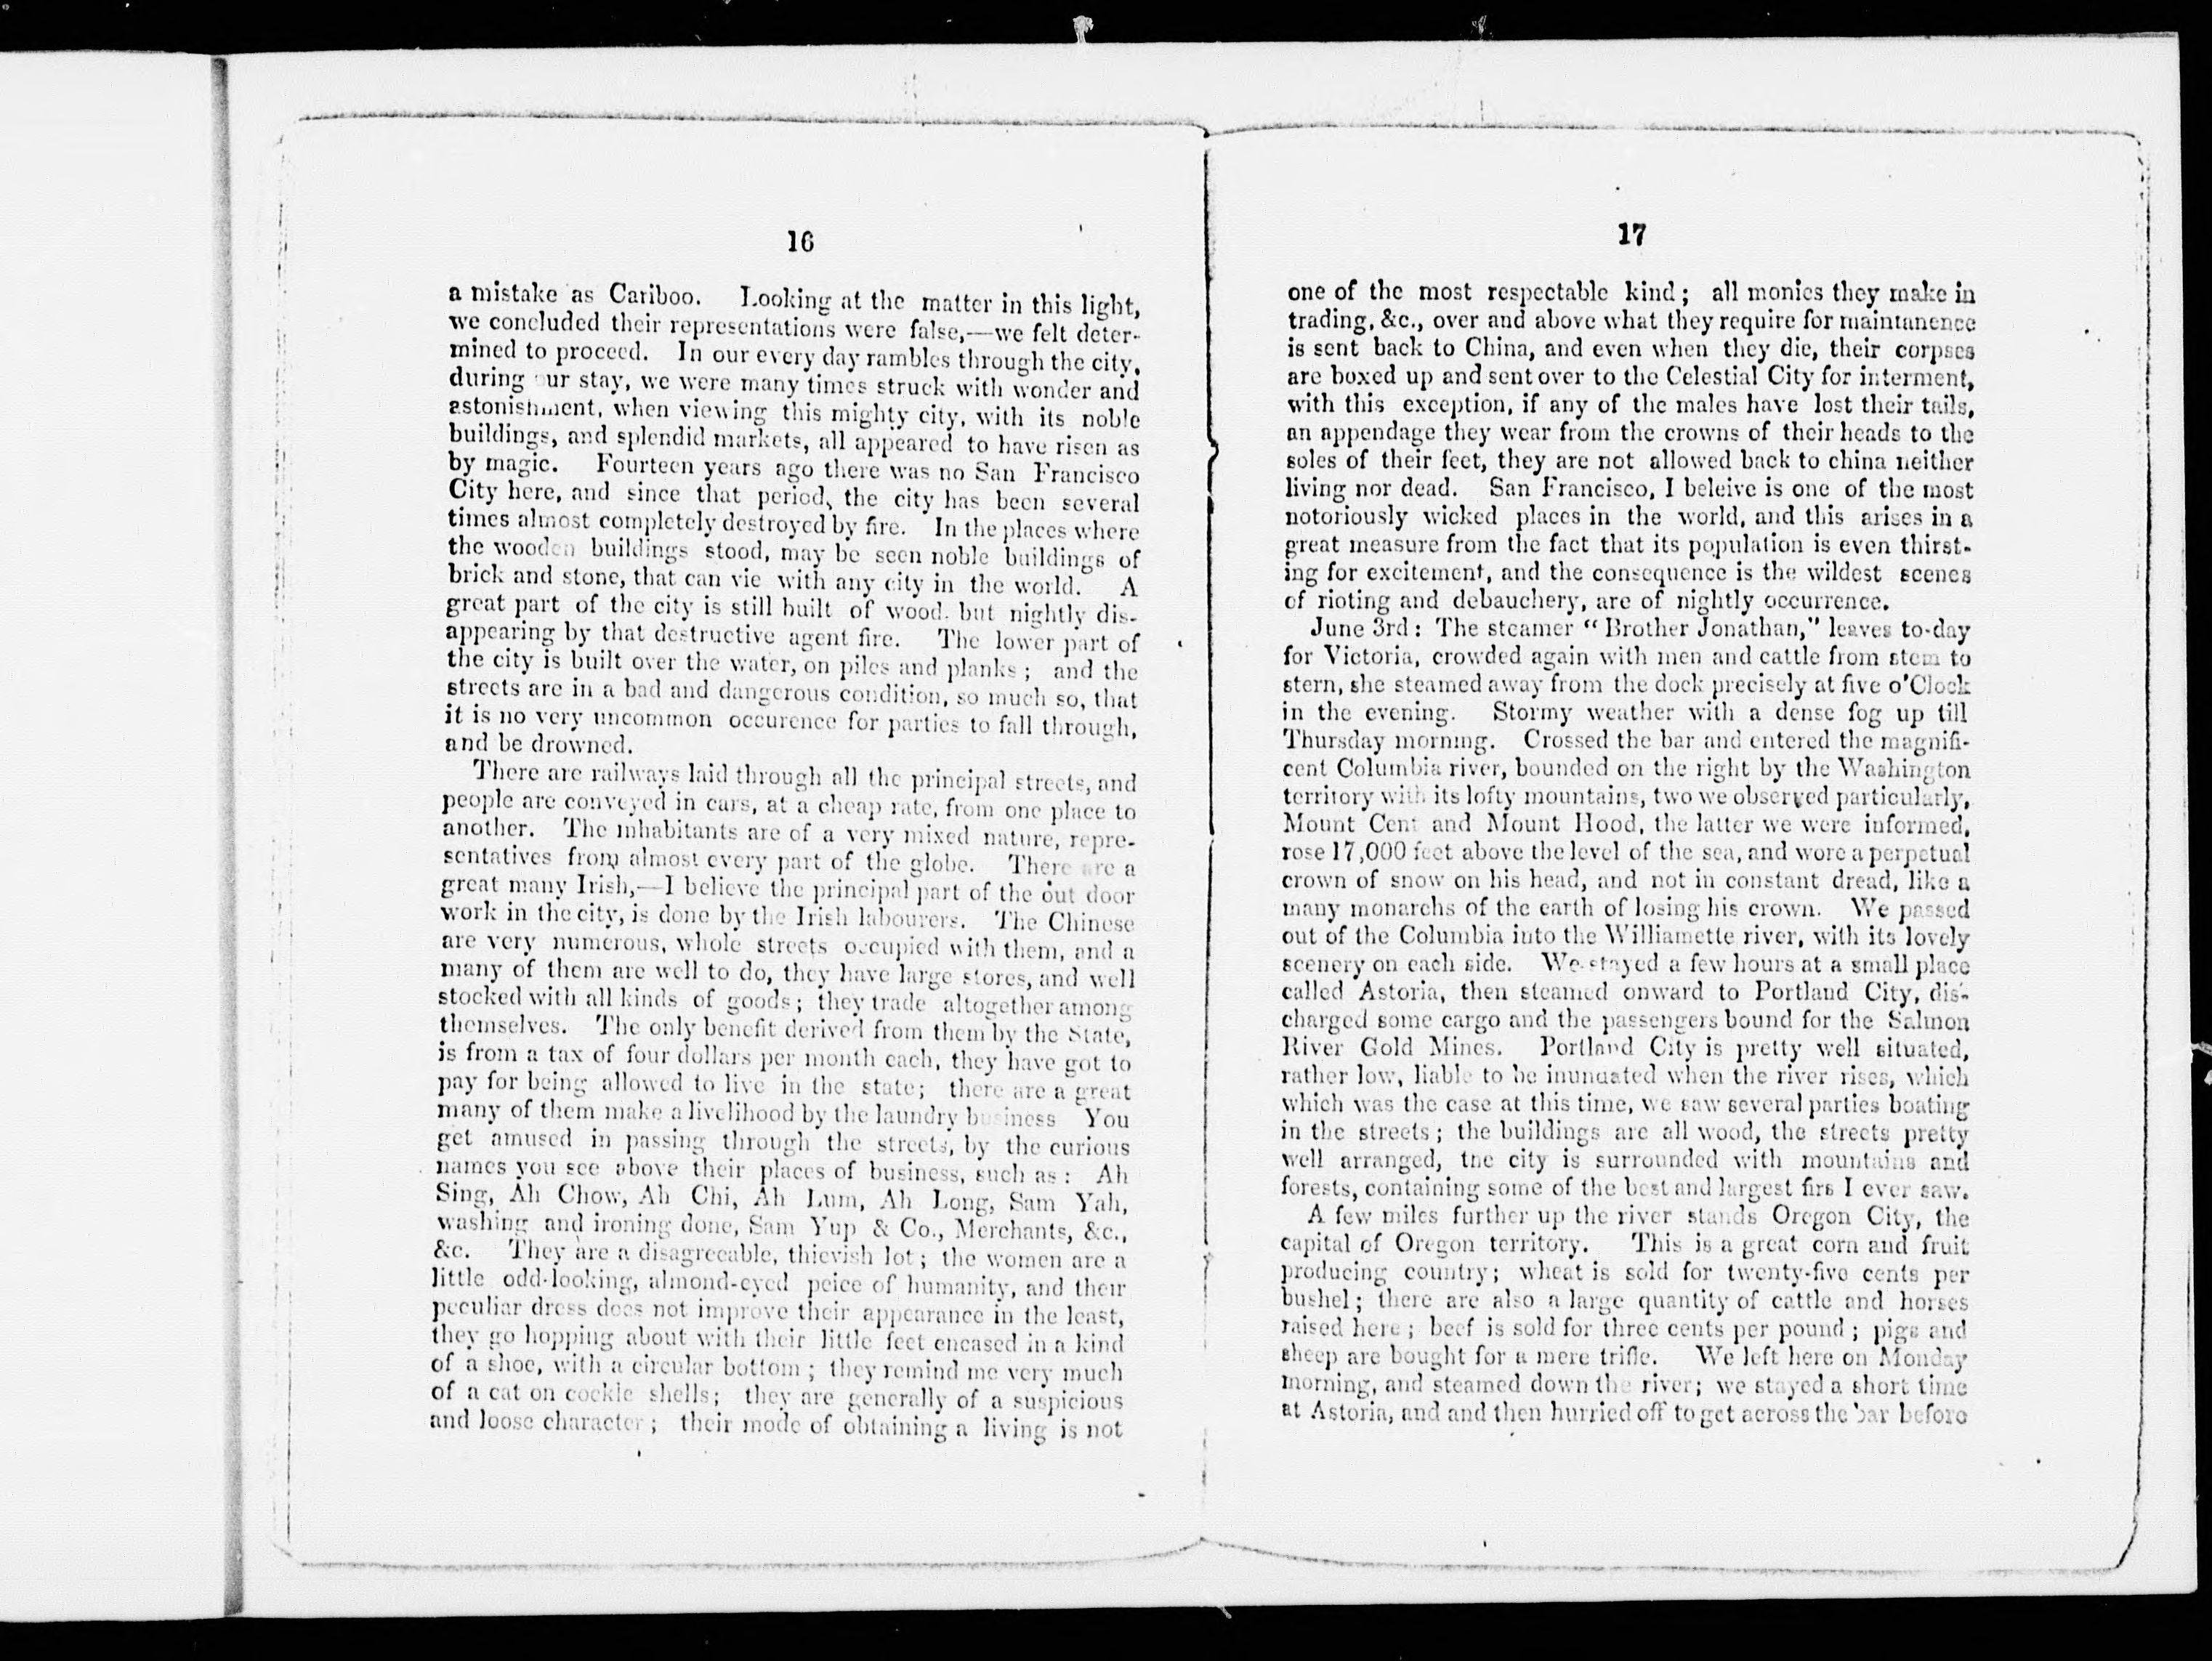 16
a mistake as Cariboo. Looking at the matter in this light,
we concluded their representations were false,—we felt deter-
mined to proceed. In our every day rambles through the city,
during ur stay, we were many times struck with wonder and
astonishment, when viewing this mighty city, with its noble
buildings, and splendid markets, all appeared to have risen as
by magic. Fourteen years ago there was no San Francisco
City here, and since that period, the city has been several
times almost completely destroyed by fire. In the places where
the wooden buildings stood, may be seen noble buildings of
brick and stone, that can vie with any city in the world. A
great part of the city is still built of wood. but nightly dis-
appearing by that destructive agent fire. The lower part of
the city is built over the water, on piles and planks; and the
streets are in a bad and dangerous condition, so much so, that
it is no very uncommon occurence for parties to fall through,
and be drowned.
There are railways laid through all the principal streets, and
people are conveyed in cars, at a cheap rate, from one place to
another. The inhabitants are of a very mixed nature, repre-
sentatives from almost every part of the globe. There are a
great many Irish,—I believe the principal part of the out door
work in the city, is done by the Irish labourers. The Chinese
are very numerous, whole streets occupied with them, and a
many of them are well to do, they have large stores, and well
stocked with all kinds of goods; they trade altogether among
themselves. The only benefit derived from them by the State,
is from a tax of four dollars per month each, they have got to
pay for being allowed to live in the state; there are a great
many of them make a livelihood by the laundry business You
get amused in passing through the streets, by the curious
names you see above their places of business, such as: Ah
Sing, Ah Chow, Ah Chi, Ah Lum, Ah Long, Sam Yah,
washing and ironing done, Sam Yup & Co., Merchants, &c.,
&c. They are a disagreeable, thievish lot; the women are a
little odd-looking, almond-eyed peice of humanity, and their
peculiar dress does not improve their appearance in the least,
they go hopping about with their little feet encased in a kind
of a shoe, with a circular bottom; they remind me very much
of a cat on cockle shells; they are generally of a suspicious
and loose character; their mode of obtaining a living is not
17
one of the most respectable kind; all monies they make in
trading, &c., over and above what they require for maintanence
is sent back to China, and even when they die, their corpses
are boxed up and sent over to the Celestial City for interment,
with this exception, if any of the males have lost their tails,
an appendage they wear from the crowns of their heads to the
soles of their feet, they are not allowed back to china neither
living nor dead. San Francisco, I beleive is one of the most
notoriously wicked places in the world, and this arises in a
great measure from the fact that its population is even thirst-
ing for excitement, and the consequence is the wildest scenes
of rioting and debauchery, are of nightly occurrence.
June 3rd: The steamer "Brother Jonathan," leaves to-day
for Victoria, crowded again with men and cattle from stem to
stern, she steamed away from the dock precisely at five o'Clock
in the evening. Stormy weather with a dense fog up till
Thursday morning. Crossed the bar and entered the magnifi-
cent Columbia river, bounded on the right by the Washington
territory with its lofty mountains, two we observed particularly,
Mount Cent and Mount Hood, the latter we were informed,
rose 17,000 feet above the level of the sea, and wore a perpetual
crown of snow on his head, and not in constant dread, like a
many monarchs of the earth of losing his crown. We passed
out of the Columbia into the Williamette river, with its lovely
scenery on each side. We stayed a few hours at a small place
called Astoria, then steamed onward to Portland City, dis-
charged some cargo and the passengers bound for the Salmon
River Gold Mines. Portland City is pretty well situated,
rather low, liable to be inundated when the river rises, which
which was the case at this time, we saw several parties boating
in the streets; the buildings are all wood, the streets pretty
well arranged, the city is surrounded with mountains and
forests, containing some of the best and largest firs I ever saw.
A few miles further up the river stands Oregon City, the
capital of Oregon territory. This is a great corn and fruit
producing country; wheat is sold for twenty-five cents per
bushel; there are also a large quantity of cattle and horses
raised here; beef is sold for three cents per pound; pigs and
sheep are bought for a mere trifle. We left here on Monday
morning, and steamed down the river; we stayed a short time
at Astoria, and and then hurried off to get across the bar before